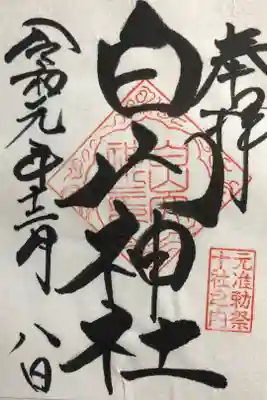 奉拝
白山神社
元准勅祭
十社之内
令和元年十二月八日